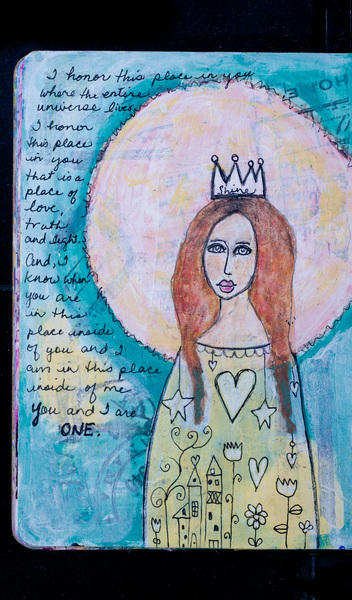 I honor this place in you
where the entire
universe lives.
I honor
this place
in you
that is a
place of
love,
truth
and light.
And, I
know when
you are
in this
place inside
of you and I
am in this place
inside of me
You and I are
ONE.
Shine